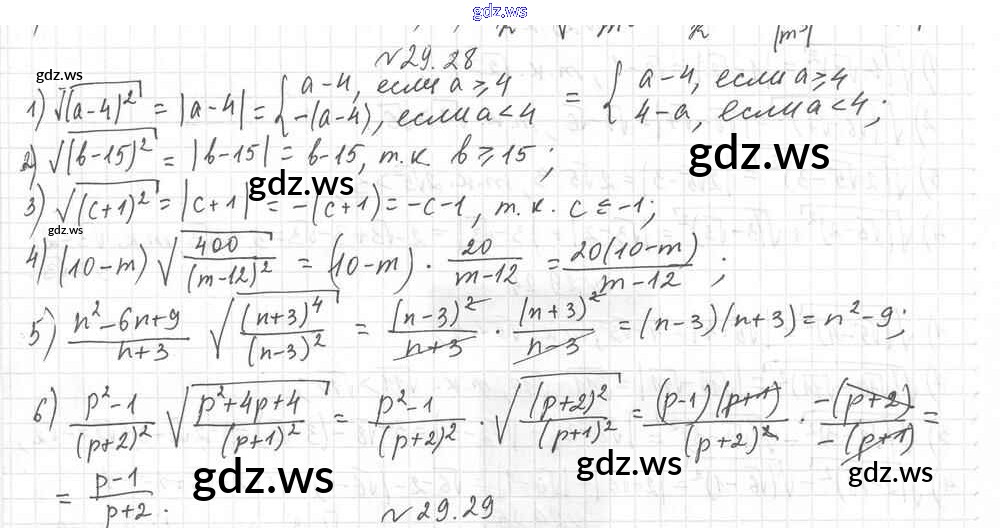 gdz.ws
№29.28
gdz.ws
1) √(a-4)² = |a-4| = { a-4, если a ≥ 4 -(a-4), если a < 4 = { a-4, если a ≥ 4 4-a, если a < 4;
gdz.ws
2) √(b-15)² = |b-15| = b-15, т.к b ≥ 15;
gdz.ws
3) √(c+1)² = |c+1| = -(c+1) = -c-1, т.к. c ≤ -1;
gdz.ws
4) (10-m) √400/(m-12)² = (10-m) · 20/(m-12) = 20(10-m)/(m-12);
gdz.ws
5) (n²-6n+9)/(n+3) √(n+3)⁴/(n-3)² = (n-3)²/(n+3) · (n+3)²/(n-3) = (n-3)(n+3) = n²-9;
6) (p²-1)/(p+2)² √(p²+4p+4)/(p+1)² = (p²-1)/(p+2)² · √(p+2)²/(p+1)² = (p-1)(p+1)/(p+2)² · -(p+2)/-(p+1) =
gdz.ws gdz.ws gdz.ws
= (p-1)/(p+2).
№29.29